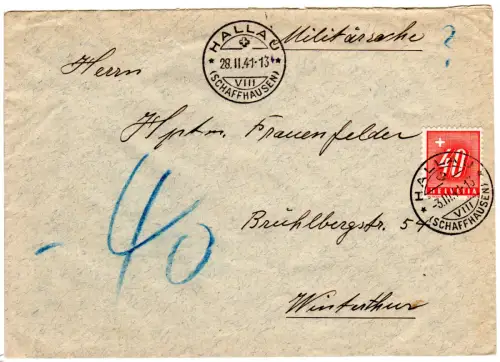 HALLAU
28.II.41-13
VIII
(SCHAFFHAUSEN)
Militärsache
?
Herrn
Hptm. Frauenfelder
40
HALLAU
-3.III.41-13
VIII
(SCHAFFHAUSEN)
-40
Brühlbergstr. 54
Winterthur